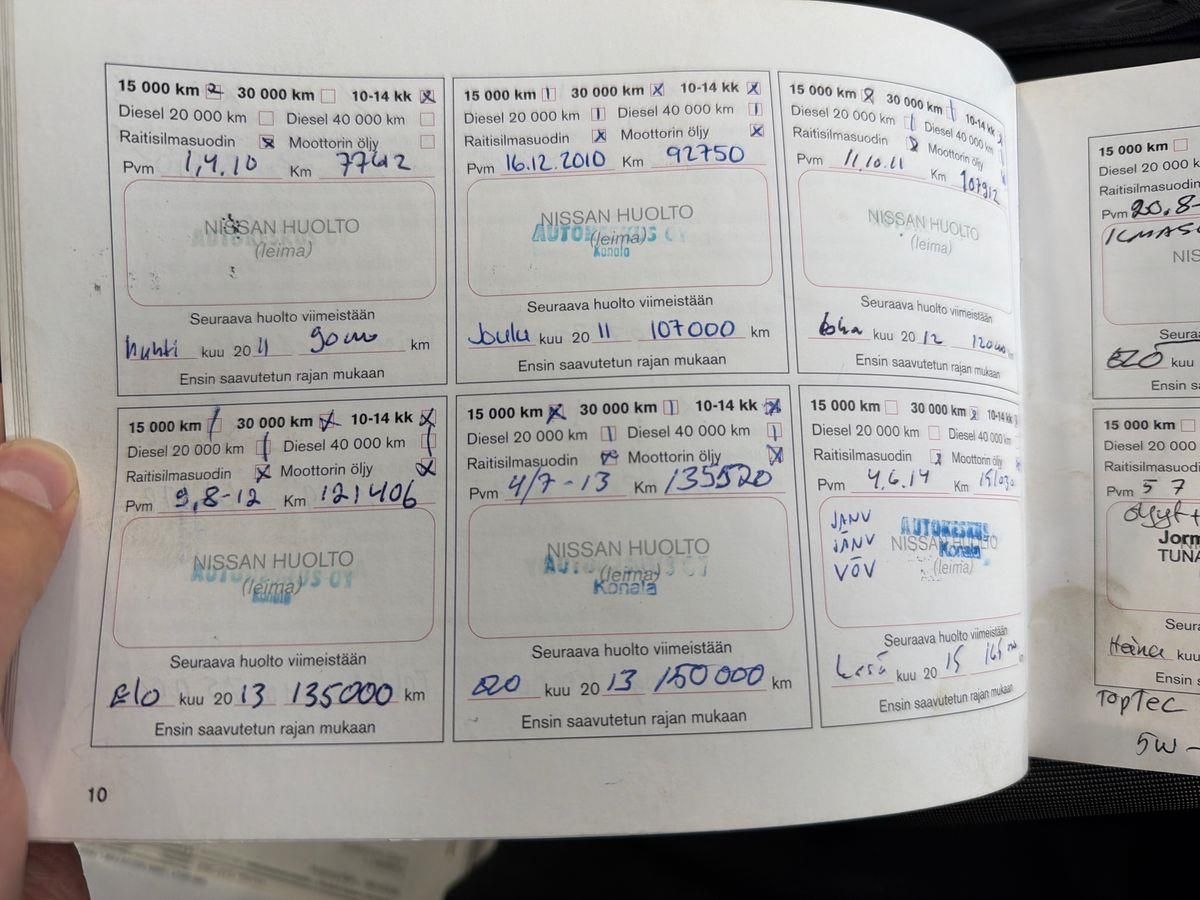 15 000 km 30 000 km 10-14 kk
Diesel 20 000 km Diesel 40 000 km
Raitisilmasuodin Moottorin öljy
Pvm 1,4,10 Km 77412
NISSAN HUOLTO
(leima)
Seuraava huolto viimeistään
huhti kuu 20 11 km
Ensin saavutetun rajan mukaan
15 000 km 30 000 km 10-14 kk
Diesel 20 000 km Diesel 40 000 km
Raitisilmasuodin Moottorin öljy
Pvm 16.12.2010 Km 92750
NISSAN HUOLTO
AUTOKESKUS OY
(leima)
Konala
Seuraava huolto viimeistään
Joulu kuu 20 11 107000 km
Ensin saavutetun rajan mukaan
15 000 km 30 000 km 10-14 kk
Diesel 20 000 km Diesel 40 000 km
Raitisilmasuodin Moottorin öljy
Pvm 11,10.11 Km 107912
NISSAN HUOLTO
(leima)
Seuraava huolto viimeistään
loka kuu 20 12 km
Ensin saavutetun rajan mukaan
15 000 km 30 000 km 10-14 kk
Diesel 20 000 km Diesel 40 000 km
Raitisilmasuodin Moottorin öljy
Pvm 9,8-12 Km 121406
NISSAN HUOLTO
AUTOKESKUS OY
(leima)
Konala
Seuraava huolto viimeistään
Elo kuu 20 13 135000 km
Ensin saavutetun rajan mukaan
15 000 km 30 000 km 10-14 kk
Diesel 20 000 km Diesel 40 000 km
Raitisilmasuodin Moottorin öljy
Pvm 4/7-13 Km 135520
NISSAN HUOLTO
AUTOKESKUS OY
(leima)
Konala
Seuraava huolto viimeistään
ELO kuu 20 13 150000 km
Ensin saavutetun rajan mukaan
15 000 km 30 000 km 10-14 kk
Diesel 20 000 km Diesel 40 000 km
Raitisilmasuodin Moottorin öljy
Pvm 4,6,14 Km
JANV
JÄNV
VÖV
AUTOKESKUS
Konala
NISSAN HUOLTO
(leima)
Seuraava huolto viimeistään
Kesä kuu 20 15 km
Ensin saavutetun rajan mukaan
10
15 000 km
Diesel 20 000 k
Raitisilmasuod
Pvm 20,8-
NIS
Seura
ELO kuu
Ensin s
15 000 km
Diesel 20 00
Raitisilmasuo
Pvm 5 7
öljyt +
Jorm
TUNA
Seur
Heinä kuu
Ensin s
TOPTEC
5W -